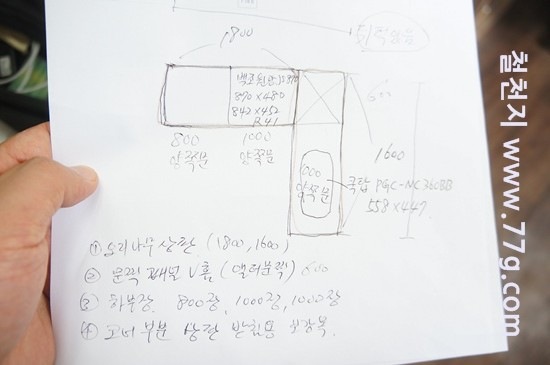 1800
백조씽크
870×480
842×452
R41
800
양쪽문
1000
양쪽문
600
1600
1000
양쪽문
쿡탑 PGC-NC360BB
558×447
① 오리나무 상판 (1800, 1600)
② 문짝 고패널 V홈 (옐더문짝) 600
③ 하부장 800장, 1000장, 1000장
④ 코너부분 상판 받침용 각목
철천지 www.77g.com